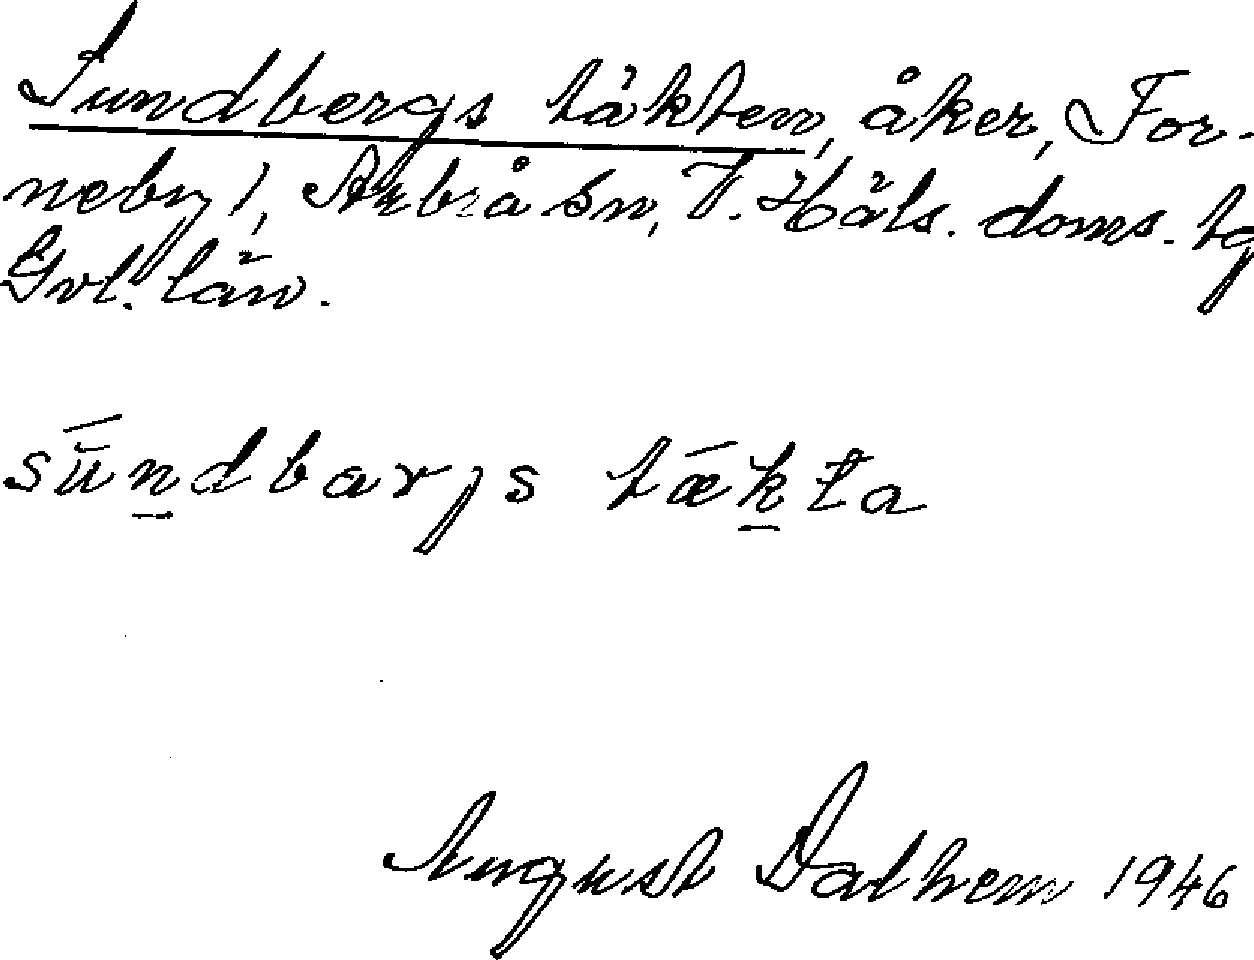 Sundbergs täkten, åker, For-
neby 1, Arbrå sn, V. Häls. doms. tg
Gvl. län.
súndbarjs tǽkta
August Dalhem 1946